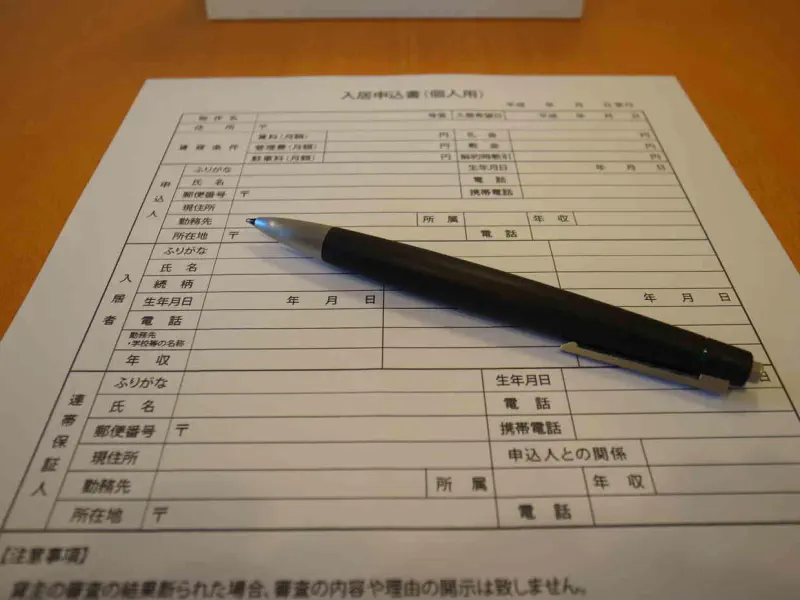 入居申込書(個人用)
平成 年 月 日
物件名 号室 入居希望日 平成 年 月 日
住所 〒
賃貸条件 賃料(月額) 円 礼金 円
管理費(月額) 円 敷金 円
駐車料(月額) 円 解約時敷引 円
申込人 ふりがな 生年月日 年 月 日
氏名 電話
郵便番号 〒 携帯電話
現住所
勤務先 所属 年収
所在地 〒 電話
入居者 ふりがな
氏名
続柄
生年月日 年 月 日 年 月 日
電話
勤務先・学校等の名称
年収
連帯保証人 ふりがな 生年月日 日
氏名 電話
郵便番号 〒 携帯電話
現住所 申込人との関係
勤務先 所属 年収
所在地 〒 電話
【注意事項】
貸主の審査の結果断られた場合、審査の内容や理由の開示は致しません。